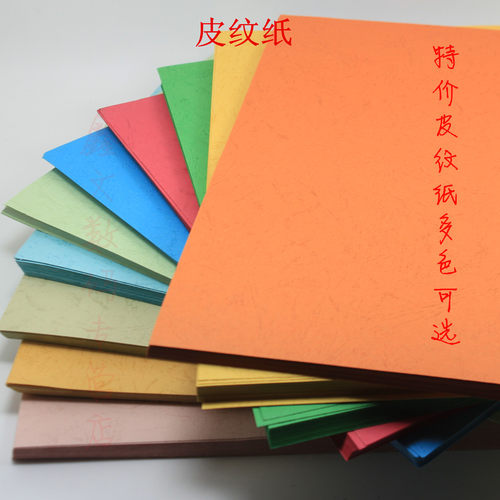 皮纹纸
特价皮纹纸多色可选